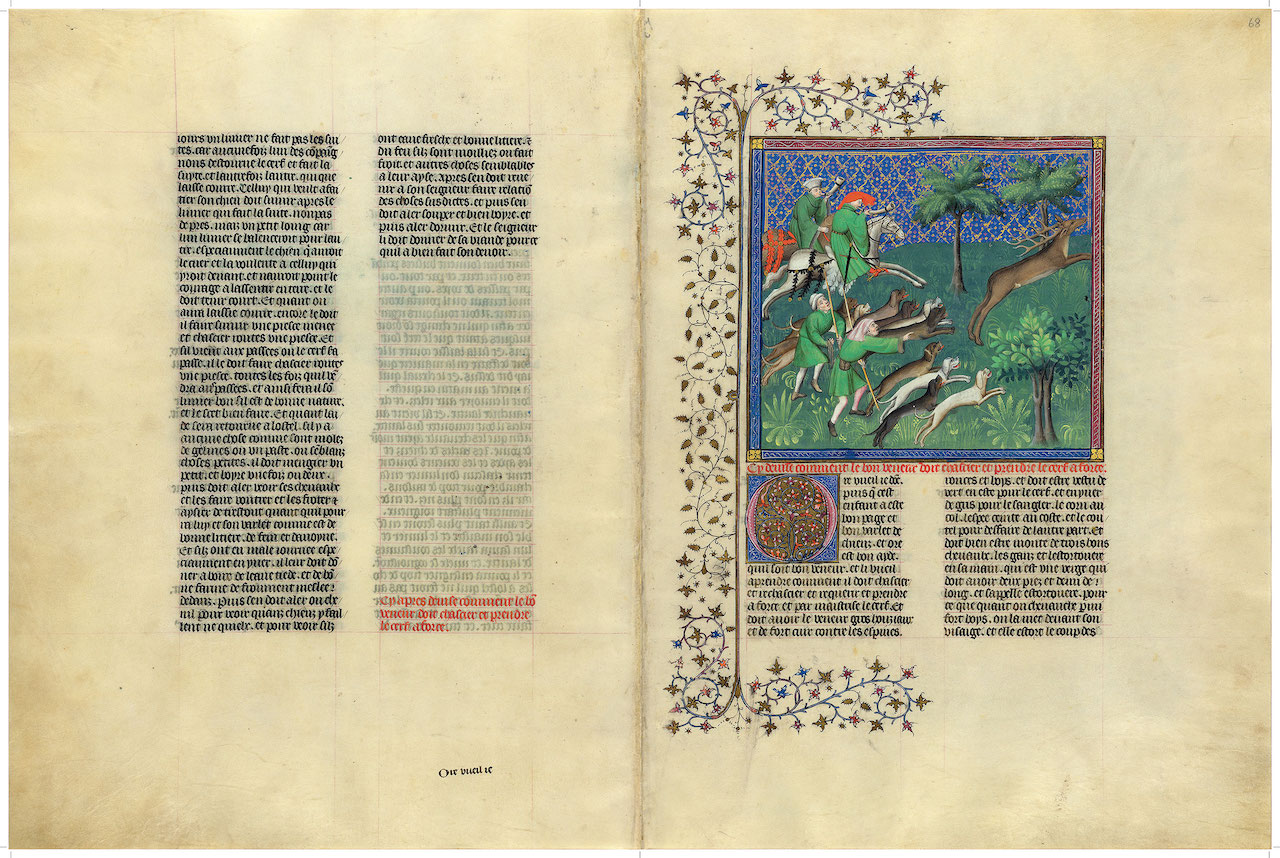 iours vn limier ne fait pas les sui
tes. car aucunefoiz lun des cõpaig
nons destourne le cerf et fait la
suyte. et lautrefoiz lautre. qui que
laisse courre. Celluy qui veult afai
tier son chien doit suiuir apres le
limier qui fait la suite. non pas
de pres. mais vn petit loing car
lun limier se balenceroit pour lau
tre. especiaument le chien qͥ auroit
le cuer et la voulente a celluy qui
yroit deuant. et nauroit point le
couraige a lassentir en terre. et le
doit tenir court. Et quant on
aura laissie courre. encore le doit
il faire suiuir vne piesce mener
et chascier routes vne piesce. Et
sil vient aux passees ou le cerf sa
passe. il le doit faire chascier routes
vne piesce. toutes les foiz quil vẽ
dra au passees. et ainsi fera il sõ
limier bon sil est de bonne nature.
et le scet bien faire. Et quant lui
de sera retourne a lostel. sil y a
aucune chose comme sont molz
de gelines ou vn paste. ou seblanz
choses petites. il doit mengier vn
petit. et boyre vne foiz ou deux.
puis doit aler veoir ses cheuaulx
et les faire voutrer et les froter et
aysier de trestout quant quil pour
ra luy et son varlet comme est de
bonne litiere. de fein et dauoyne.
Et silz ont eu male iournee espe
ciaument en yuer. il leur doit dõ
ner a boire de leaue tiede. et de bõ
ne farine de froument meslee
dedenz. Puis sen doit aler ou che
nil pour veoir quanz chienz y fail
lent ne quielx. et pour veoir silz
ont eaue fresche et bonne litiere. et
du feu silz sont moilliez ou fait
froit. et autres choses semblables
a leur ayse. Apres sen doit veue
nir a son seigneur faire relaciõ
des choses susdictes. et puis sen
doit aler souper et bien boyre. et
puis aler dormir. Et le seigneur
li doit donner de sa viande pour ce
quil a bien fait son deuoir.
Cy apres deuise comment le bõ
veneur doit chascier et prendre
le cerf a force.
Ore vueil ie
68
Cy deuise comment le bon veneur doit chascier et prendre le cerf a force.
Ore vueil ie dẽ.
puis qͥ cest
enfant a este
bon page et
bon varlet de
chienz. et ore
est bon ayde.
quil soit bon veneur. et li vueil
aprendre comment il doit chascier
et rechascier et requerir et prendre
a force et par maistrise le cerf. Et
doit auoir le veneur gros houziaux
et de fort cuir contre les espines.
ronces et boys. et doit estre vestu de
vert en este pour le cerf. et en yuer
de gris pour le sangler. le corn au
col. lespee ceinte au coste. et le cou
tel pour deffaire de lautre part. Et
doit bien estre monte de trois bons
cheuaulx. les ganz et lestortouere
en sa main. qui est vne verge qui
doit auoir deux piez et demi de
long. et sappelle estortouere. pour
ce que quant on cheuauche parmi
fort boys. on la met deuant son
visaige. et elle estort le coup des